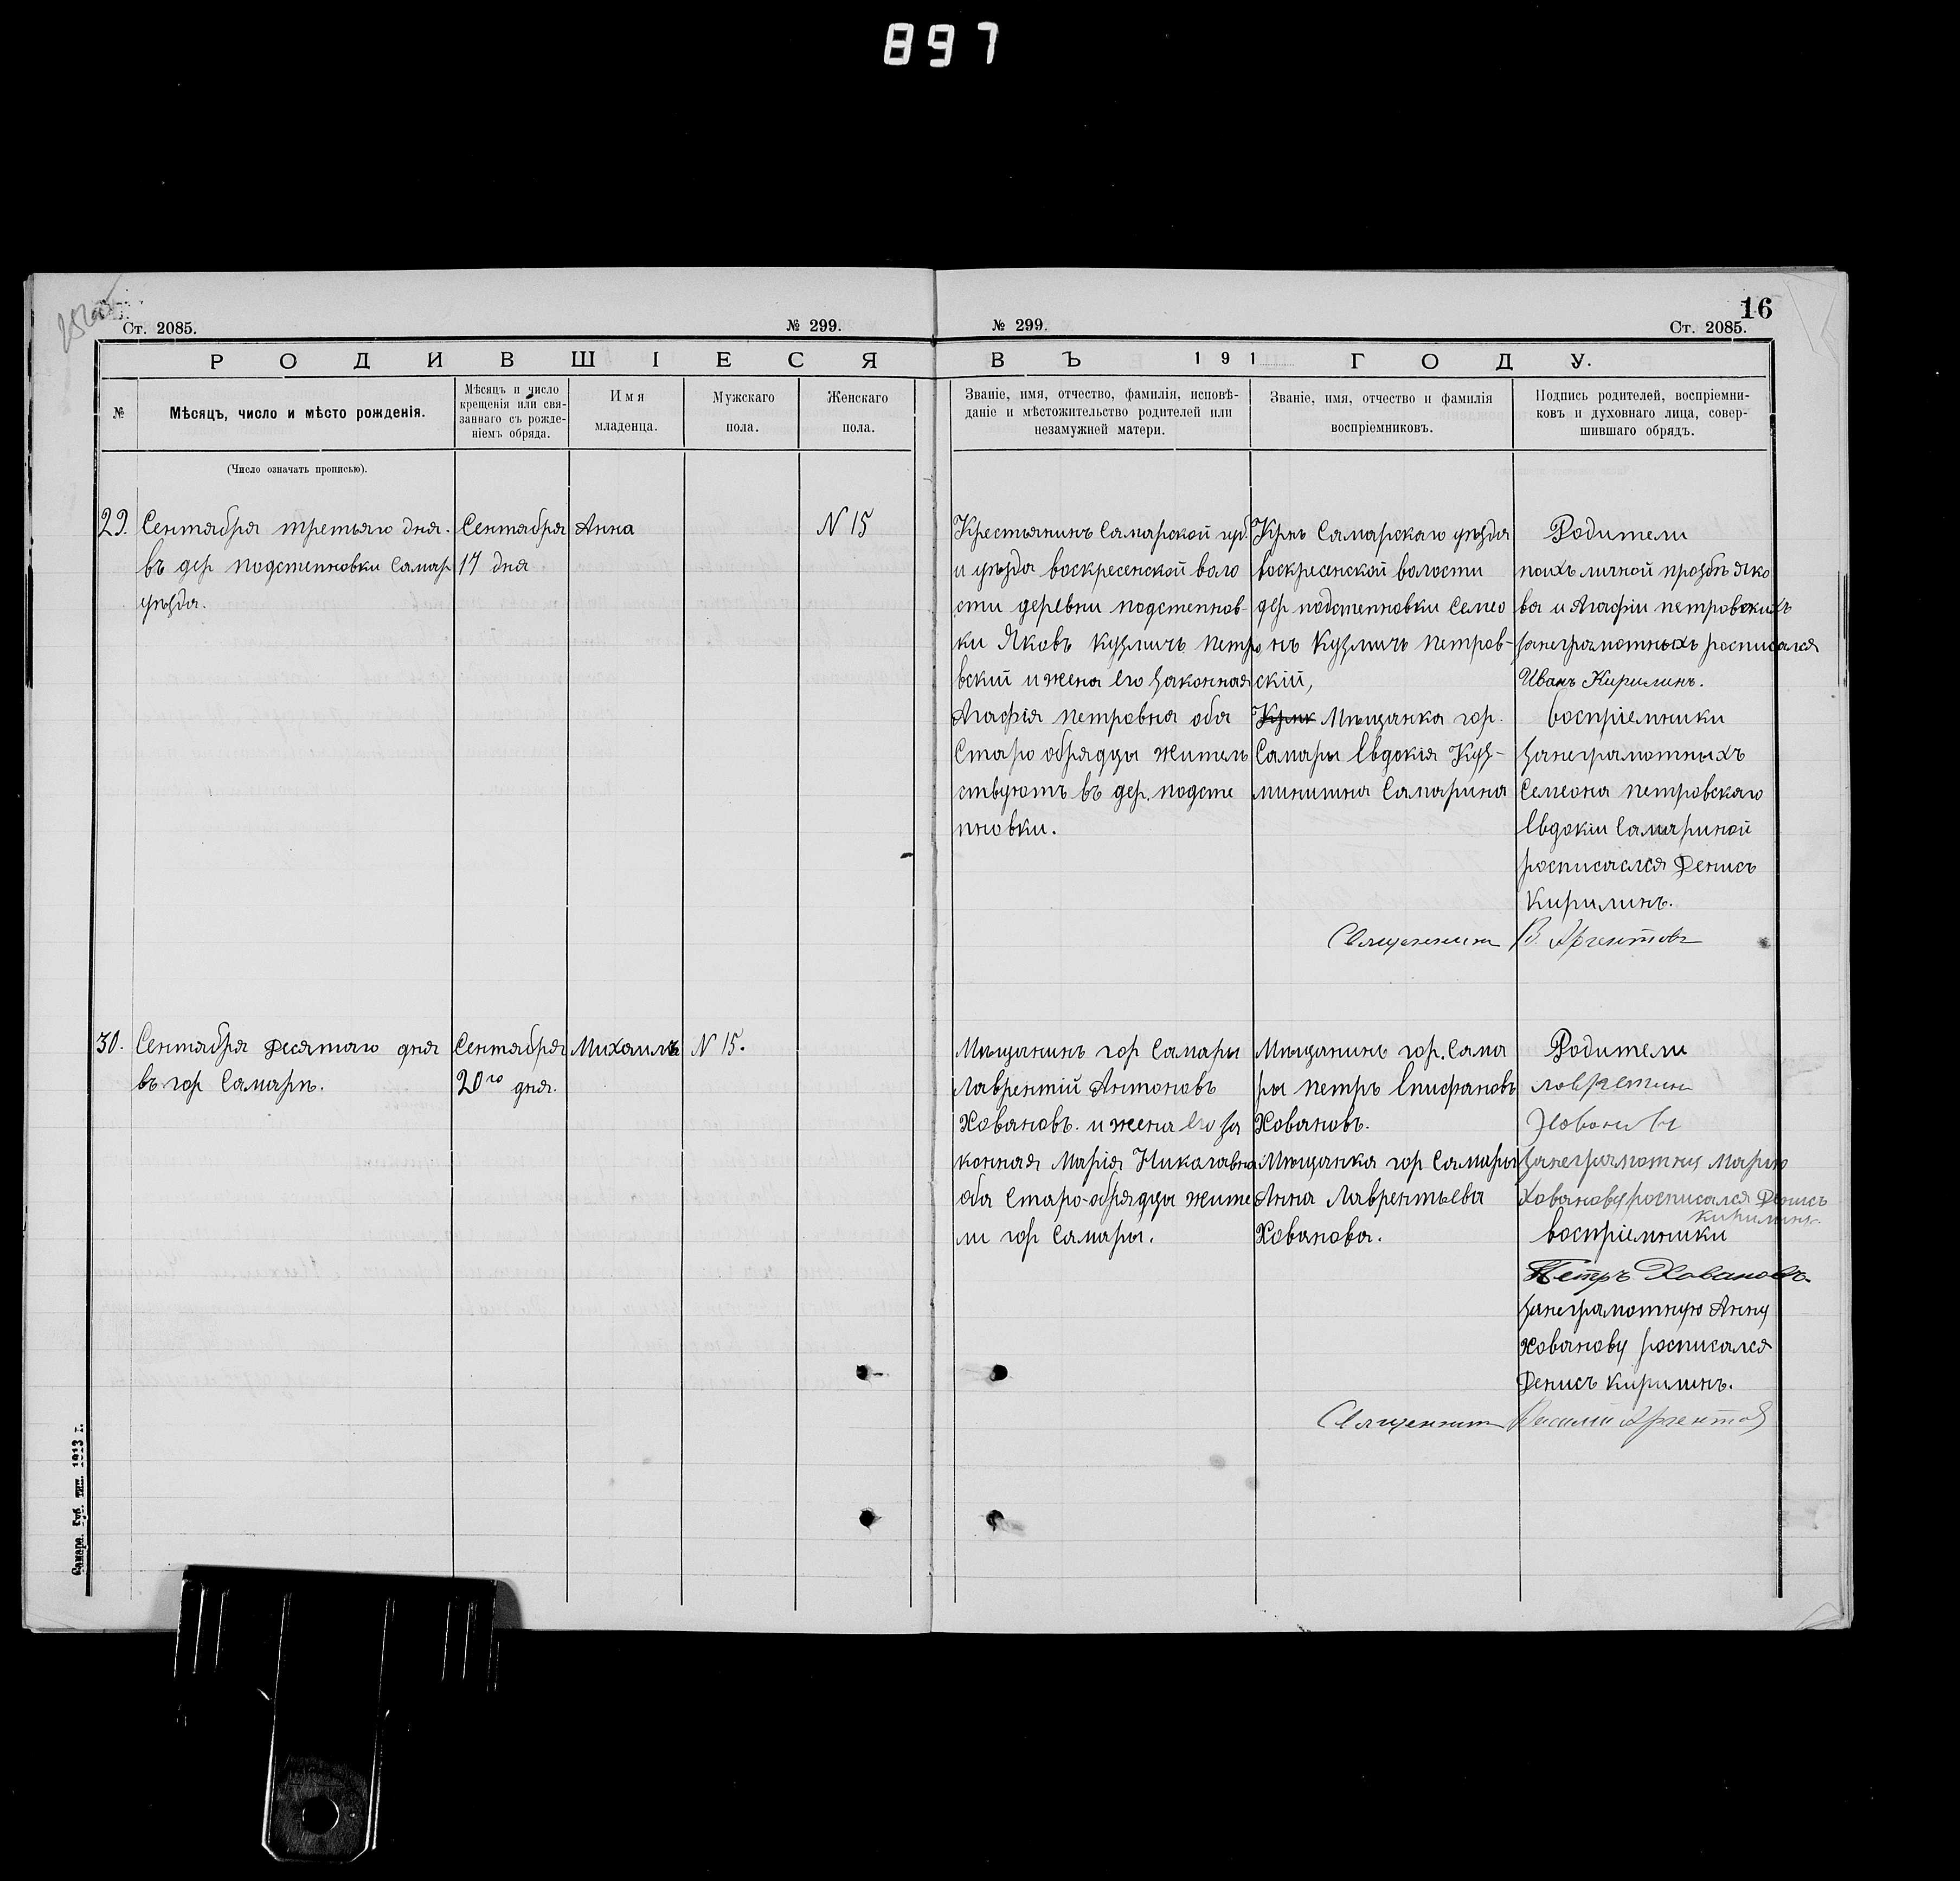 897
16
Ст. 2085.
№ 299.
№ 299.
Ст. 2085.
РОДИВШІЕСЯ
ВЪ 191 ГОДУ.
№
Мѣсяцъ, число и мѣсто рожденія.
Мѣсяцъ и число
крещенія или свя-
заннаго съ рожде-
ніемъ обряда.
Имя
младенца.
Мужскаго
пола.
Женскаго
пола.
Званіе, имя, отчество, фамилія, исповѣ-
даніе и мѣстожительство родителей или
незамужней матери.
Званіе, имя, отчество и фамилія
воспріемниковъ.
Подпись родителей, воспріемни-
ковъ и духовнаго лица, совер-
шившаго обрядъ.
(Число означать прописью).
29.
Сентября третьяго дня.
въ дер подстепновки Самар
уѣзда.
Сентября
17 дня
Анна
N 15
Крестьянинъ Самарской губ.
и уѣзда воскресенской воло
сти деревни подстепнов-
ки Яковъ Кузмичъ Петро
вский и жена его законная
Агафія петровна оба
Старо обрядцы жител
ствуютъ въ дер. подсте
пновки.
Крнъ Самарскаго уѣзда
воскресенской волости
дер подстепновки Семео
нъ Кузмичъ Петров-
скій,
Мѣщанка гор.
Самары Евдокія Куз-
минишна Самарина
Родители
поихъ личной прозбѣ Яко
ва и Агафіи петровскихъ
занеграмотныхъ росписался
Иванъ Кирилинъ.
воспріемники
занеграмотныхъ
Семеона петровскаго
Евдокіи Самариной
росписался Денисъ
Кирилинъ.
Священникъ В. Аргентовъ
30.
Сентября Десятаго дня
въ гор Самарѣ.
Сентября
20го дня.
Михаилъ
N 15.
Мѣщанинъ гор Самары
Лаврентій Антоновъ
Ховановъ. и жена его за
конная Марія Николавна
оба Старо-обрядцы жите
ли гор Самары.
Мѣщанинъ гор. Сама
ры петръ Епифановъ
Ховановъ.
Мѣщанка гор Самары
Анна Лаврентьева
Хованова.
Родители
занеграмотну Марию
Хованову росписался Денисъ
Кирилинъ.
воспріемники
Петръ Ховановъ.
занеграмотную Анну
Хованову росписался
Денисъ Кирилинъ.
Священникъ Василій Аргентов
Самара. Губ. тип. 1913 г.